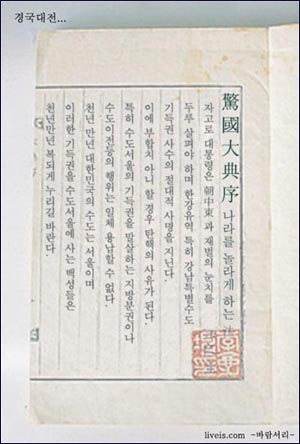 경국대전...
驚國大典序 나라를 놀라게 하는 법
자고로 대통령은 朝中東과 재벌의 눈치를
두루 살펴야 하며 한강유역 특히 강남특별수도
기득권 사수의 절대적 사명을 지닌다.
이에 부합치 아니 할 경우 탄핵의 사유가 된다.
특히 수도서울의 기득권을 말살하는 지방분권이나
수도이전등의 행위는 일체 용납할 수 없다.
천년 만년 대한민국의 수도는 서울이며
이러한 기득권을 수도서울에 사는 백성들은
천년만년 복되게 누리길 바란다.
liveis.com -바람서리-